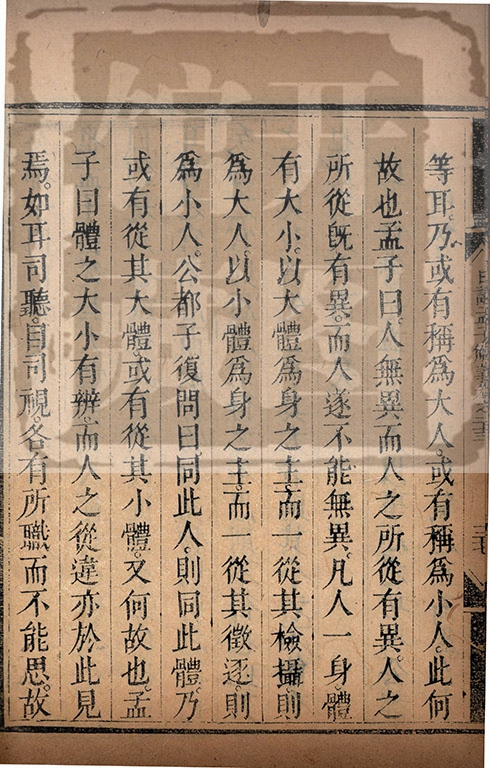 等耳。乃或有稱爲大人。或有稱爲小人。此何
故也孟子曰。人無異而人之所從有異。人之
所從既有異。而人遂不能無異。凡人一身體
有大小。以大體爲身之主。而一從其檢攝。則
爲大人。以小體爲身之主。而一從其徵逐。則
爲小人。公都子復問曰同此人。則同此體。乃
或有從其大體。或有從其小體。又何故也。孟
子曰體之大小有辨。而人之從違亦於此見
焉。如耳司聽。目司視。各有所職。而不能思。故